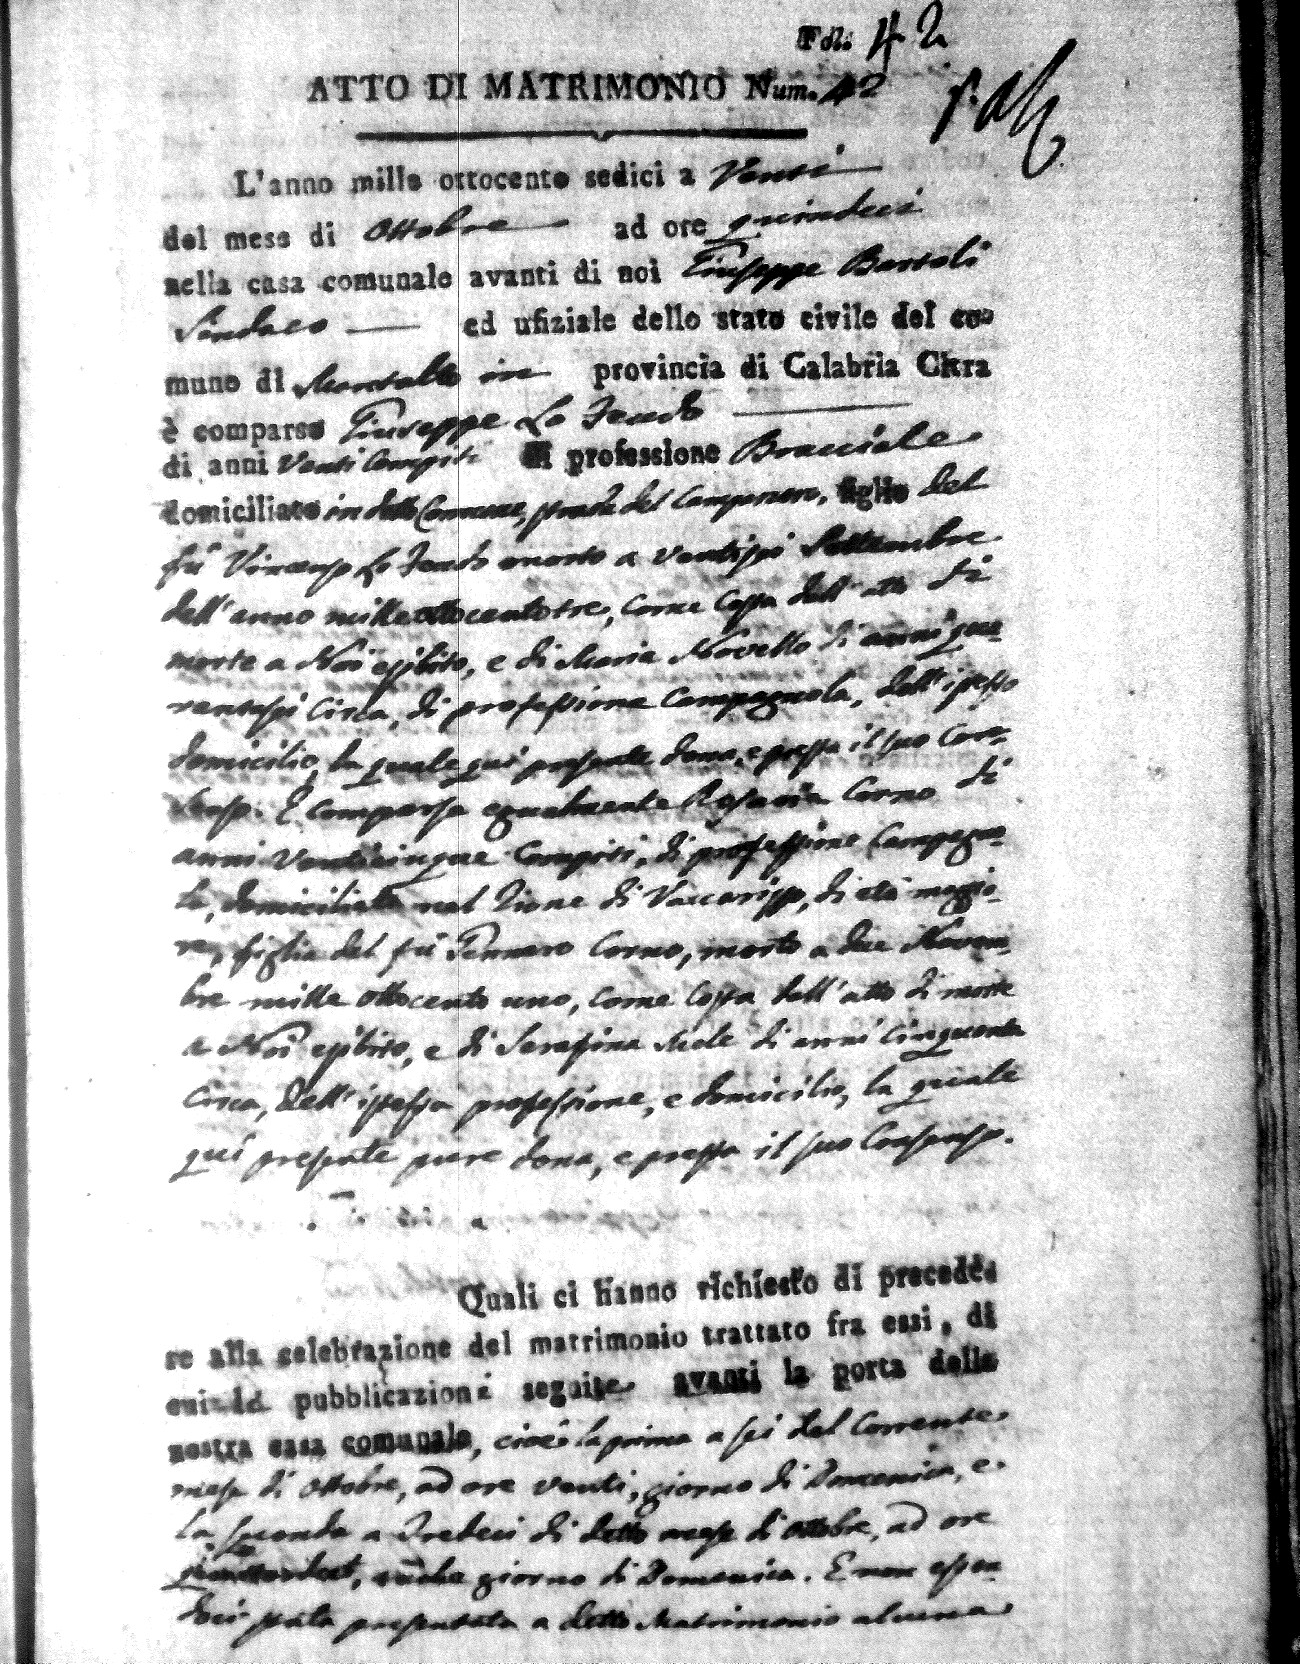 Fol. 42
ATTO DI MATRIMONIO Num. 42
L'anno mille ottocento sedici a Venti
del mese di Ottobre ad ore quindeci
nella casa comunale avanti di noi Giuseppe Bartoli
Sindaco ed ufiziale dello stato civile del co-
mune di Montalto in provincia di Calabria Citra
è comparso Giuseppe Lo Feudo
di anni Venti Compiti di professione Bracciale
domiciliato in detto Comune, strada del, figlio del
fù Vincenzo Lo Feudo morto a ventisei Settembre
dell'anno mille ottocento tre, come costa dall'atto di
morte a Noi esibito, e di Maria Novello di anni qua-
rantasei Circa, di professione Campagnola, dell'istesso
domicilio, la quale qui presente dona, e presta il suo Con-
senso. È comparsa egualmente Rosaria Corno di
anni Venticinque Compiti, di professione Campagno-
la, domiciliata nel Rione di Vaccarizzo, di età maggio-
re, figlia del fù Gennaro Corno, morto a due Novem-
bre mille ottocento uno, come costa dall'atto di morte
a Noi esibito, e di Serafina Mele di anni Cinquanta
Circa, dell'istessa professione, e domicilio, la quale
qui presente pure dona, e presta il suo Consenso.
Quali ci hanno richiesto di procede-
re alla celebrazione del matrimonio trattato fra essi, di
cui le pubblicazioni seguite avanti la porta della
nostra casa comunale, cioè la prima a sei del Corrente
mese di Ottobre, ad ore venti, giorno di Domenica, e
la seconda a Tredeci di detto mese di Ottobre, ad ore
anche giorno di Domenica. E non essen-
doci stata presentata a detto Matrimonio alcuna